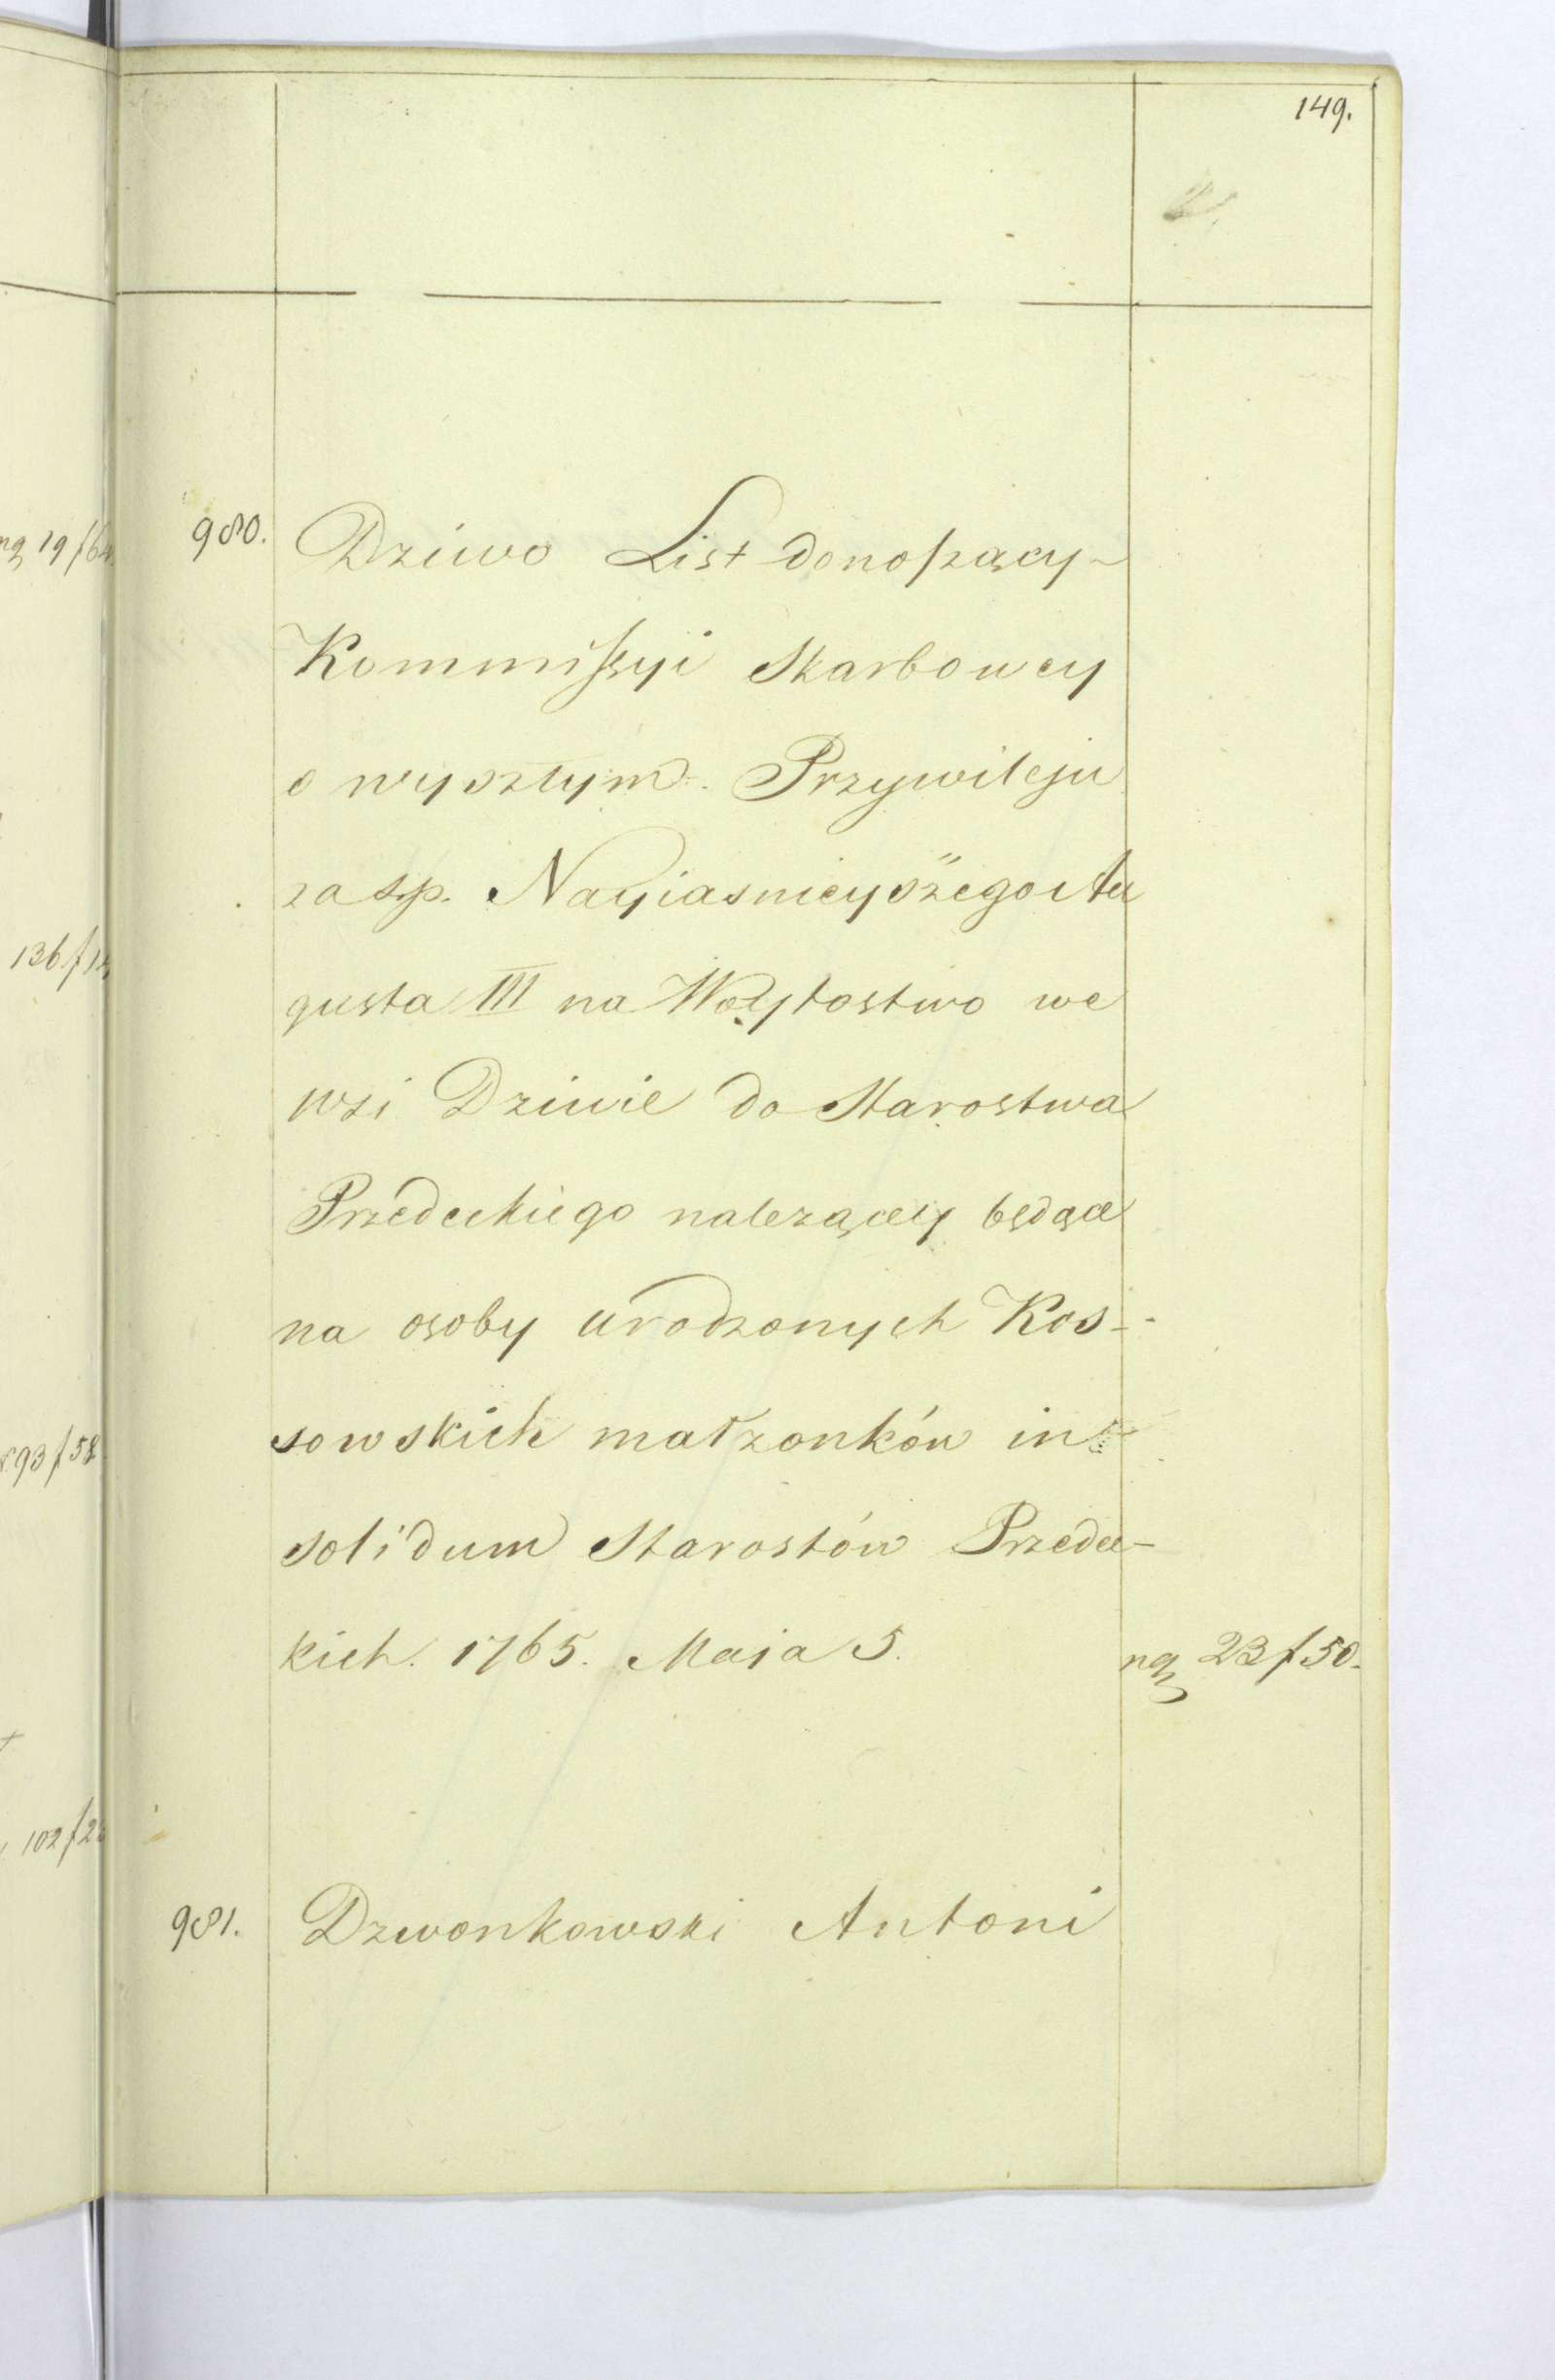 149.
980. Dziwo List donoszący
Kommissyi Skarbowey
o wyszłym Przywileju
za sp. Nayiasnieyszego Au
gusta III na Woytostwo we
wsi Dziwie do Starostwa
Przedeckiego nalezącey będące
na osoby urodzonych Kos-
sowskich małzonków in
solidum Starostów Przedec-
kich. 1765. Maja 5. 23 f 50.
981. Dzwonkowski Antoni
136 f
93 f 58
102 f